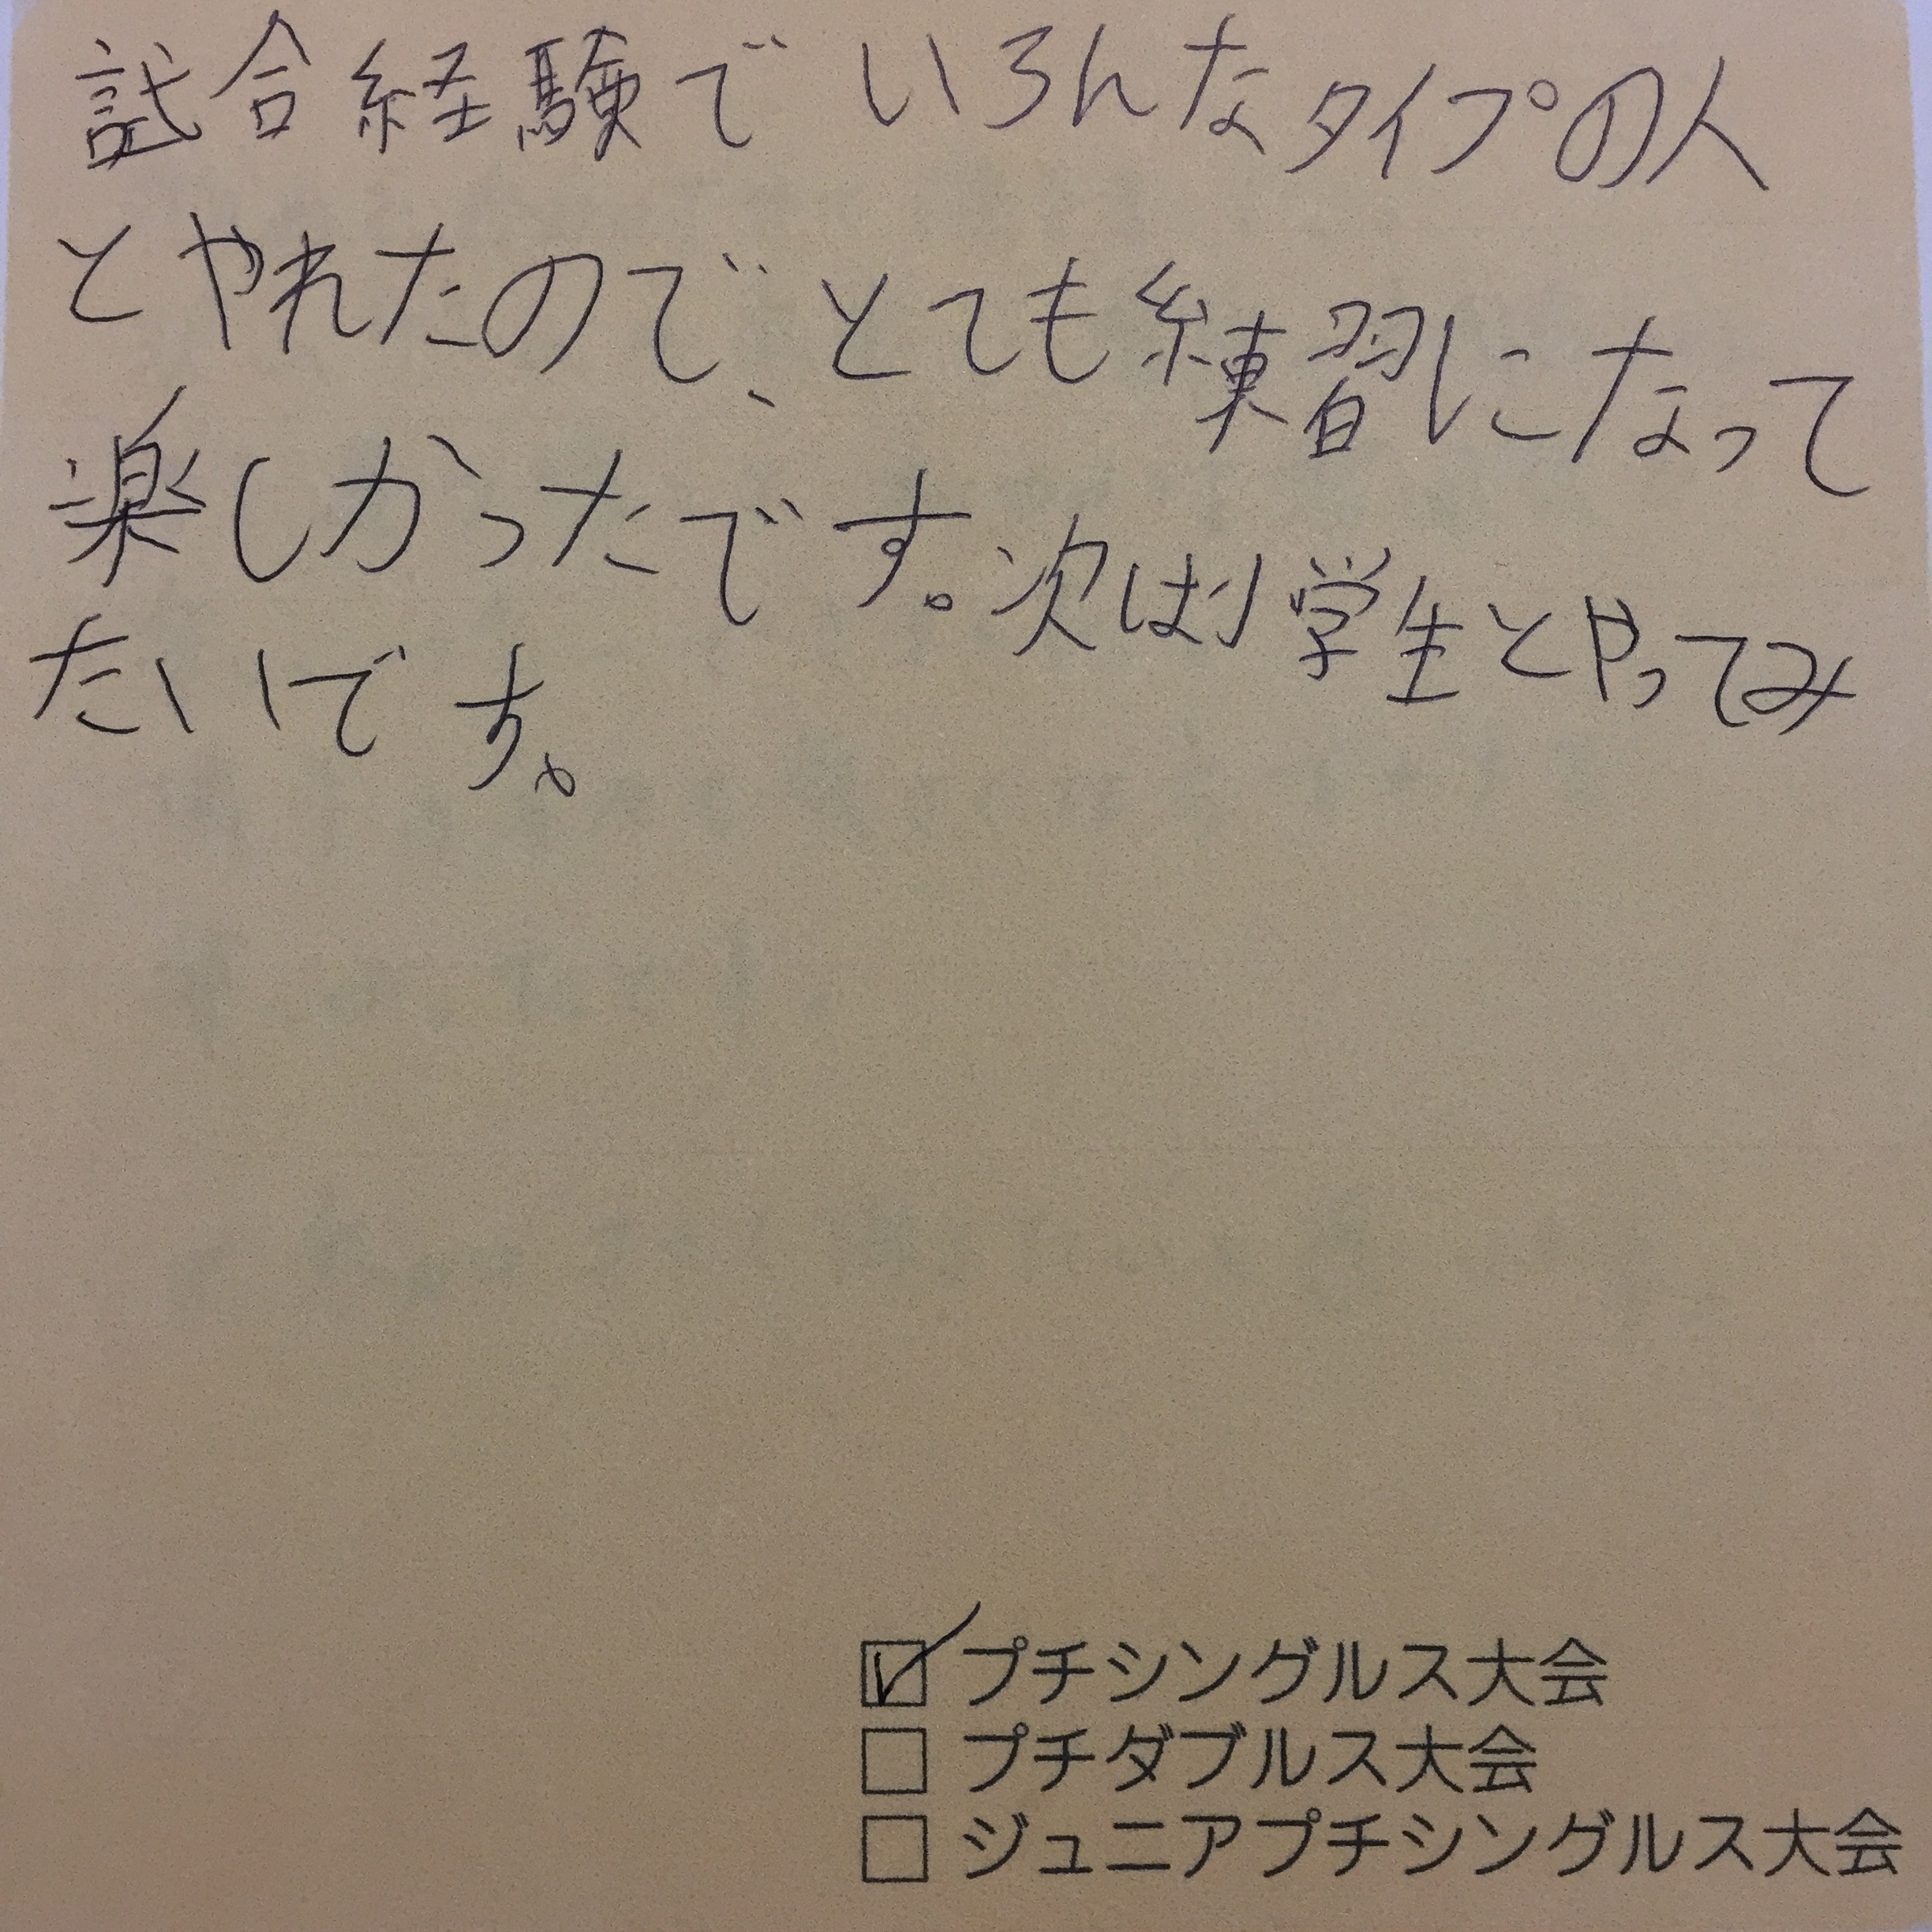 試合経験でいろんなタイプの人
とやれたので、とても練習になって
楽しかったです。次は小学生とやってみ
たいです。
☑ プチシングルス大会
□ プチダブルス大会
□ ジュニアプチシングルス大会